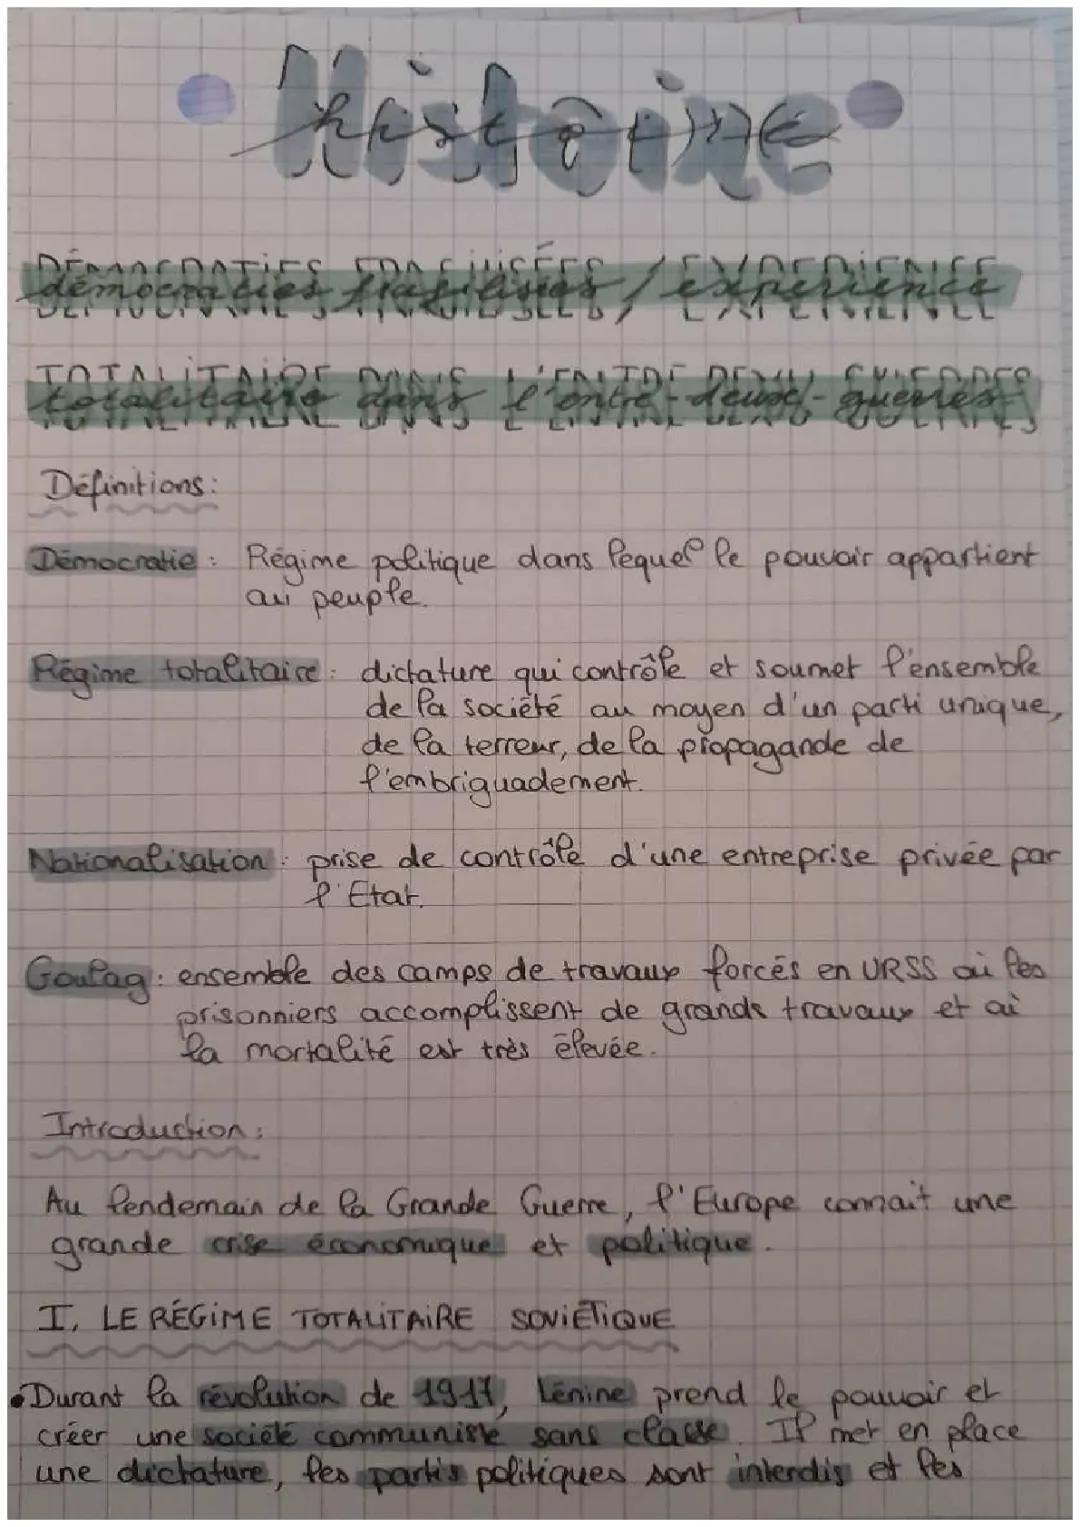 histoire
démocraties fragilisées / expérience
totalitaire dans l'entre-deux-guerres
Définitions:
Démocratie : Régime politique dans lequel le pouvoir appartient
au peuple.
Régime totalitaire : dictature qui contrôle et soumet l'ensemble
de la société au moyen d'un parti unique,
de la terreur, de la propagande de
l'embriguadement.
Nationalisation : prise de contrôle d'une entreprise privée par
l'Etat.
Goulag : ensemble des camps de travaux forcés en URSS où les
prisonniers accomplissent de grands travaux et où
la mortalité est très élevée.
Introduction :
Au lendemain de la Grande Guerre, l'Europe connait une
grande crise économique et politique.
I. LE RÉGIME TOTALITAIRE SOVIÉTIQUE
• Durant la révolution de 1917, Lénine prend le pouvoir et
créer une société communiste sans classe. Il met en place
une dictature, les partis politiques sont interdis et les